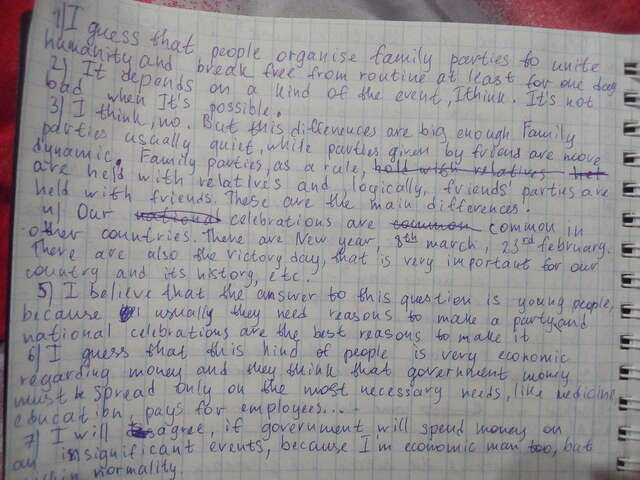 1) I guess that people organise family parties to unite
humanity and break free from routine at least for one day
2) It depends on a kind of the event, I think. It's not
bad when It's possible.
3) I think, no. But this differences are big enough Family
parties usually quiet, while parties given by friend are more
dynamic. Family parties, as a rule, hold with relatives
are held with relatives and, logically, friends' parties are
held with friends. These are the main differences.
4) Our national celebrations are common common in
other countries. There are New year, 8th march, 23rd february.
There are also the Victory day, that is very important for our
country and its history, etc.
5) I believe that the answer to this question is young people,
because usually they need reasons to make a party, and
national celebrations are the best reasons to make it
6) I guess that this kind of people is very economic
regarding money and they think that government money
must be spread only on the most necessary needs, like medicine,
education, pays for employees....
7) I will agree, if government will spend money on
an insignificant events, because I'm economic man too, but
within normality